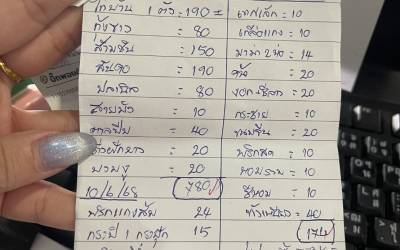 ไก่บ้าน 1 ตัว = 190 =
กุ้งขาว = 80
สามชั้น = 150
สันคอ = 190
ปลานิล = 80
สายบัว = 10
= 40
ถั่วฝักยาว = 20
บวบงู = 20
10/6/68 780
พริกแกงส้ม 24
กะปิ 1 กระปุก 15
= 10
เกลือแกง = 10
มาม่า 2 ห่อ = 14
= 20
= 20
กระชาย = 10
ขนมจีน = 20
พริกสด = 10
หอมแดง = 10
= 10
ข้าวเหนียว = 40
174